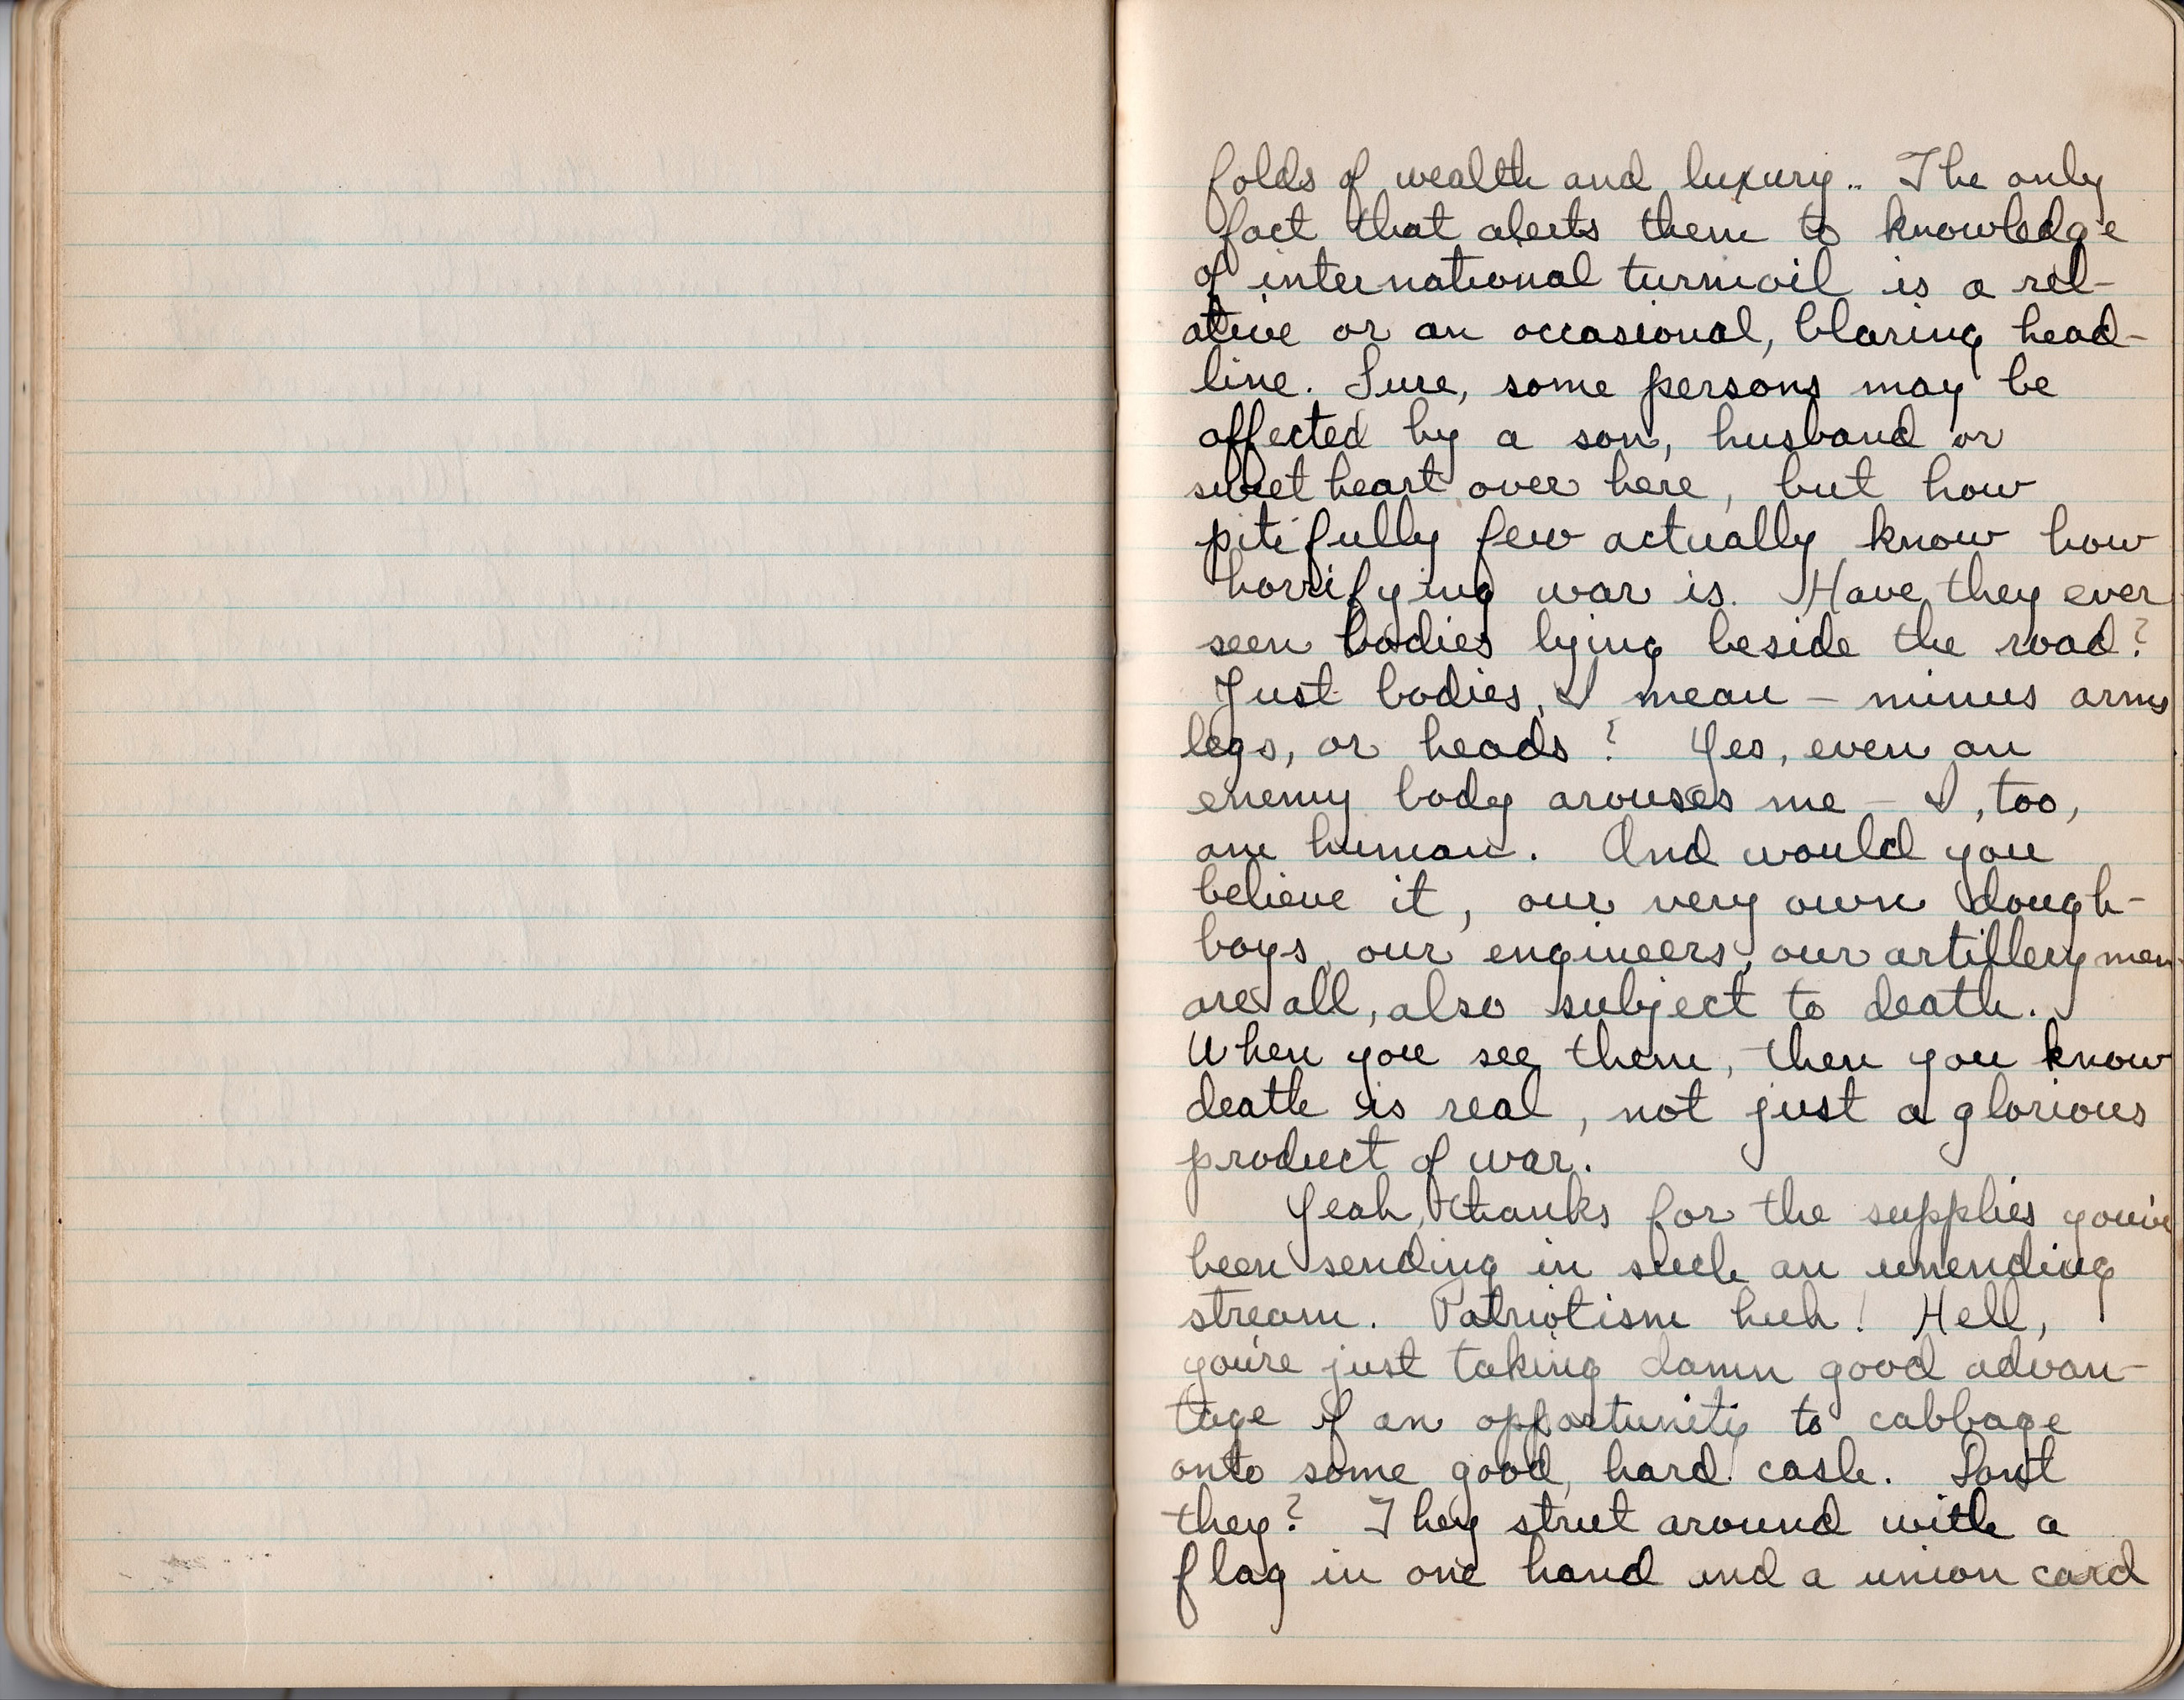 folds of wealth and luxury.. The only
fact that alerts them to knowledge
of international turmoil is a rel-
ative or an occasional, blaring head-
line. Sure, some persons may be
affected by a son, husband or
sweetheart over here, but how
pitifully few actually know how
horrifying war is. Have they ever
seen bodies lying beside the road?
Just bodies, I mean – minus arms
legs, or heads? Yes, even an
enemy body arouses me – I, too,
am human. And would you
believe it, our very own dough-
boys, our engineers, our artillerymen
are all, also subject to death.
When you see them, then you know
death is real, not just a glorious
product of war.
Yeah, thanks for the supplies you've
been sending in such an unending
stream. Patriotism huh! Hell,
you're just taking damn good advan-
tage of an opportunity to cabbage
onto some good, hard cash. Don't
they? They strut around with a
flag in one hand and a union card